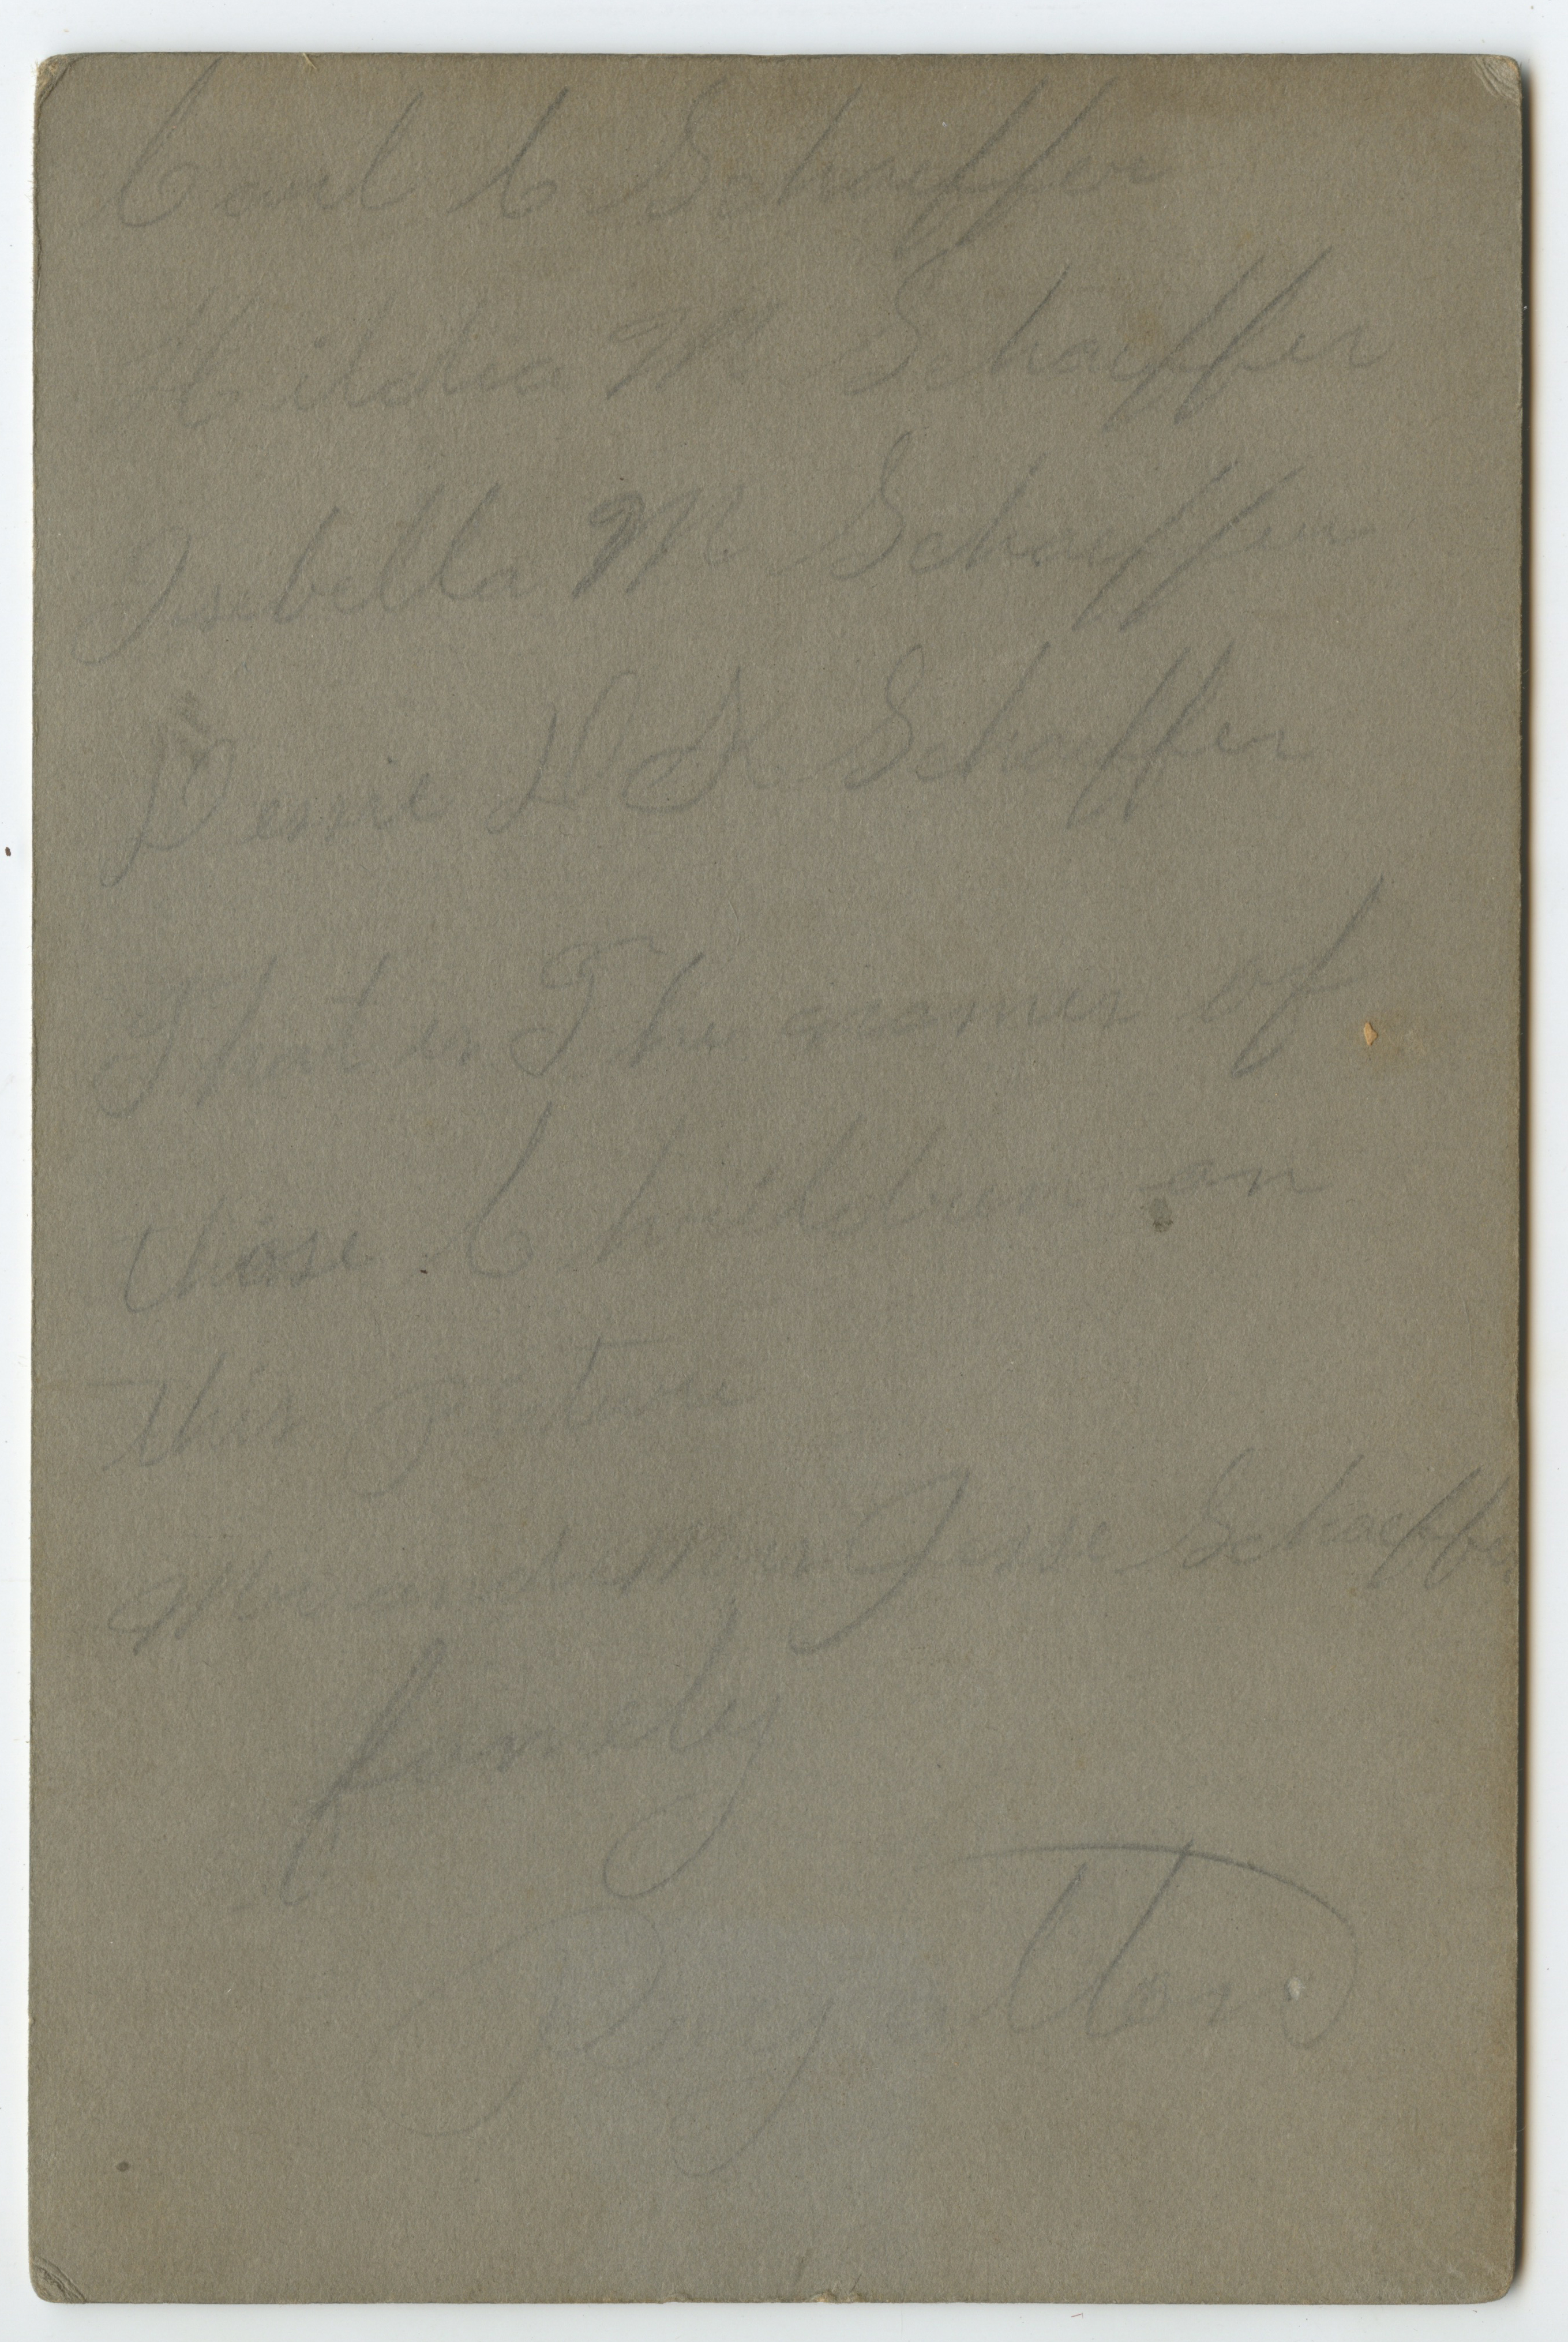 Carl C Schaeffer
Hildea M Schaeffer
Isabella M Schaeffer
D S Schaeffer
That is The names of
those Children on
this picture
Mr and Mrs Jesse Schaeffer
famely